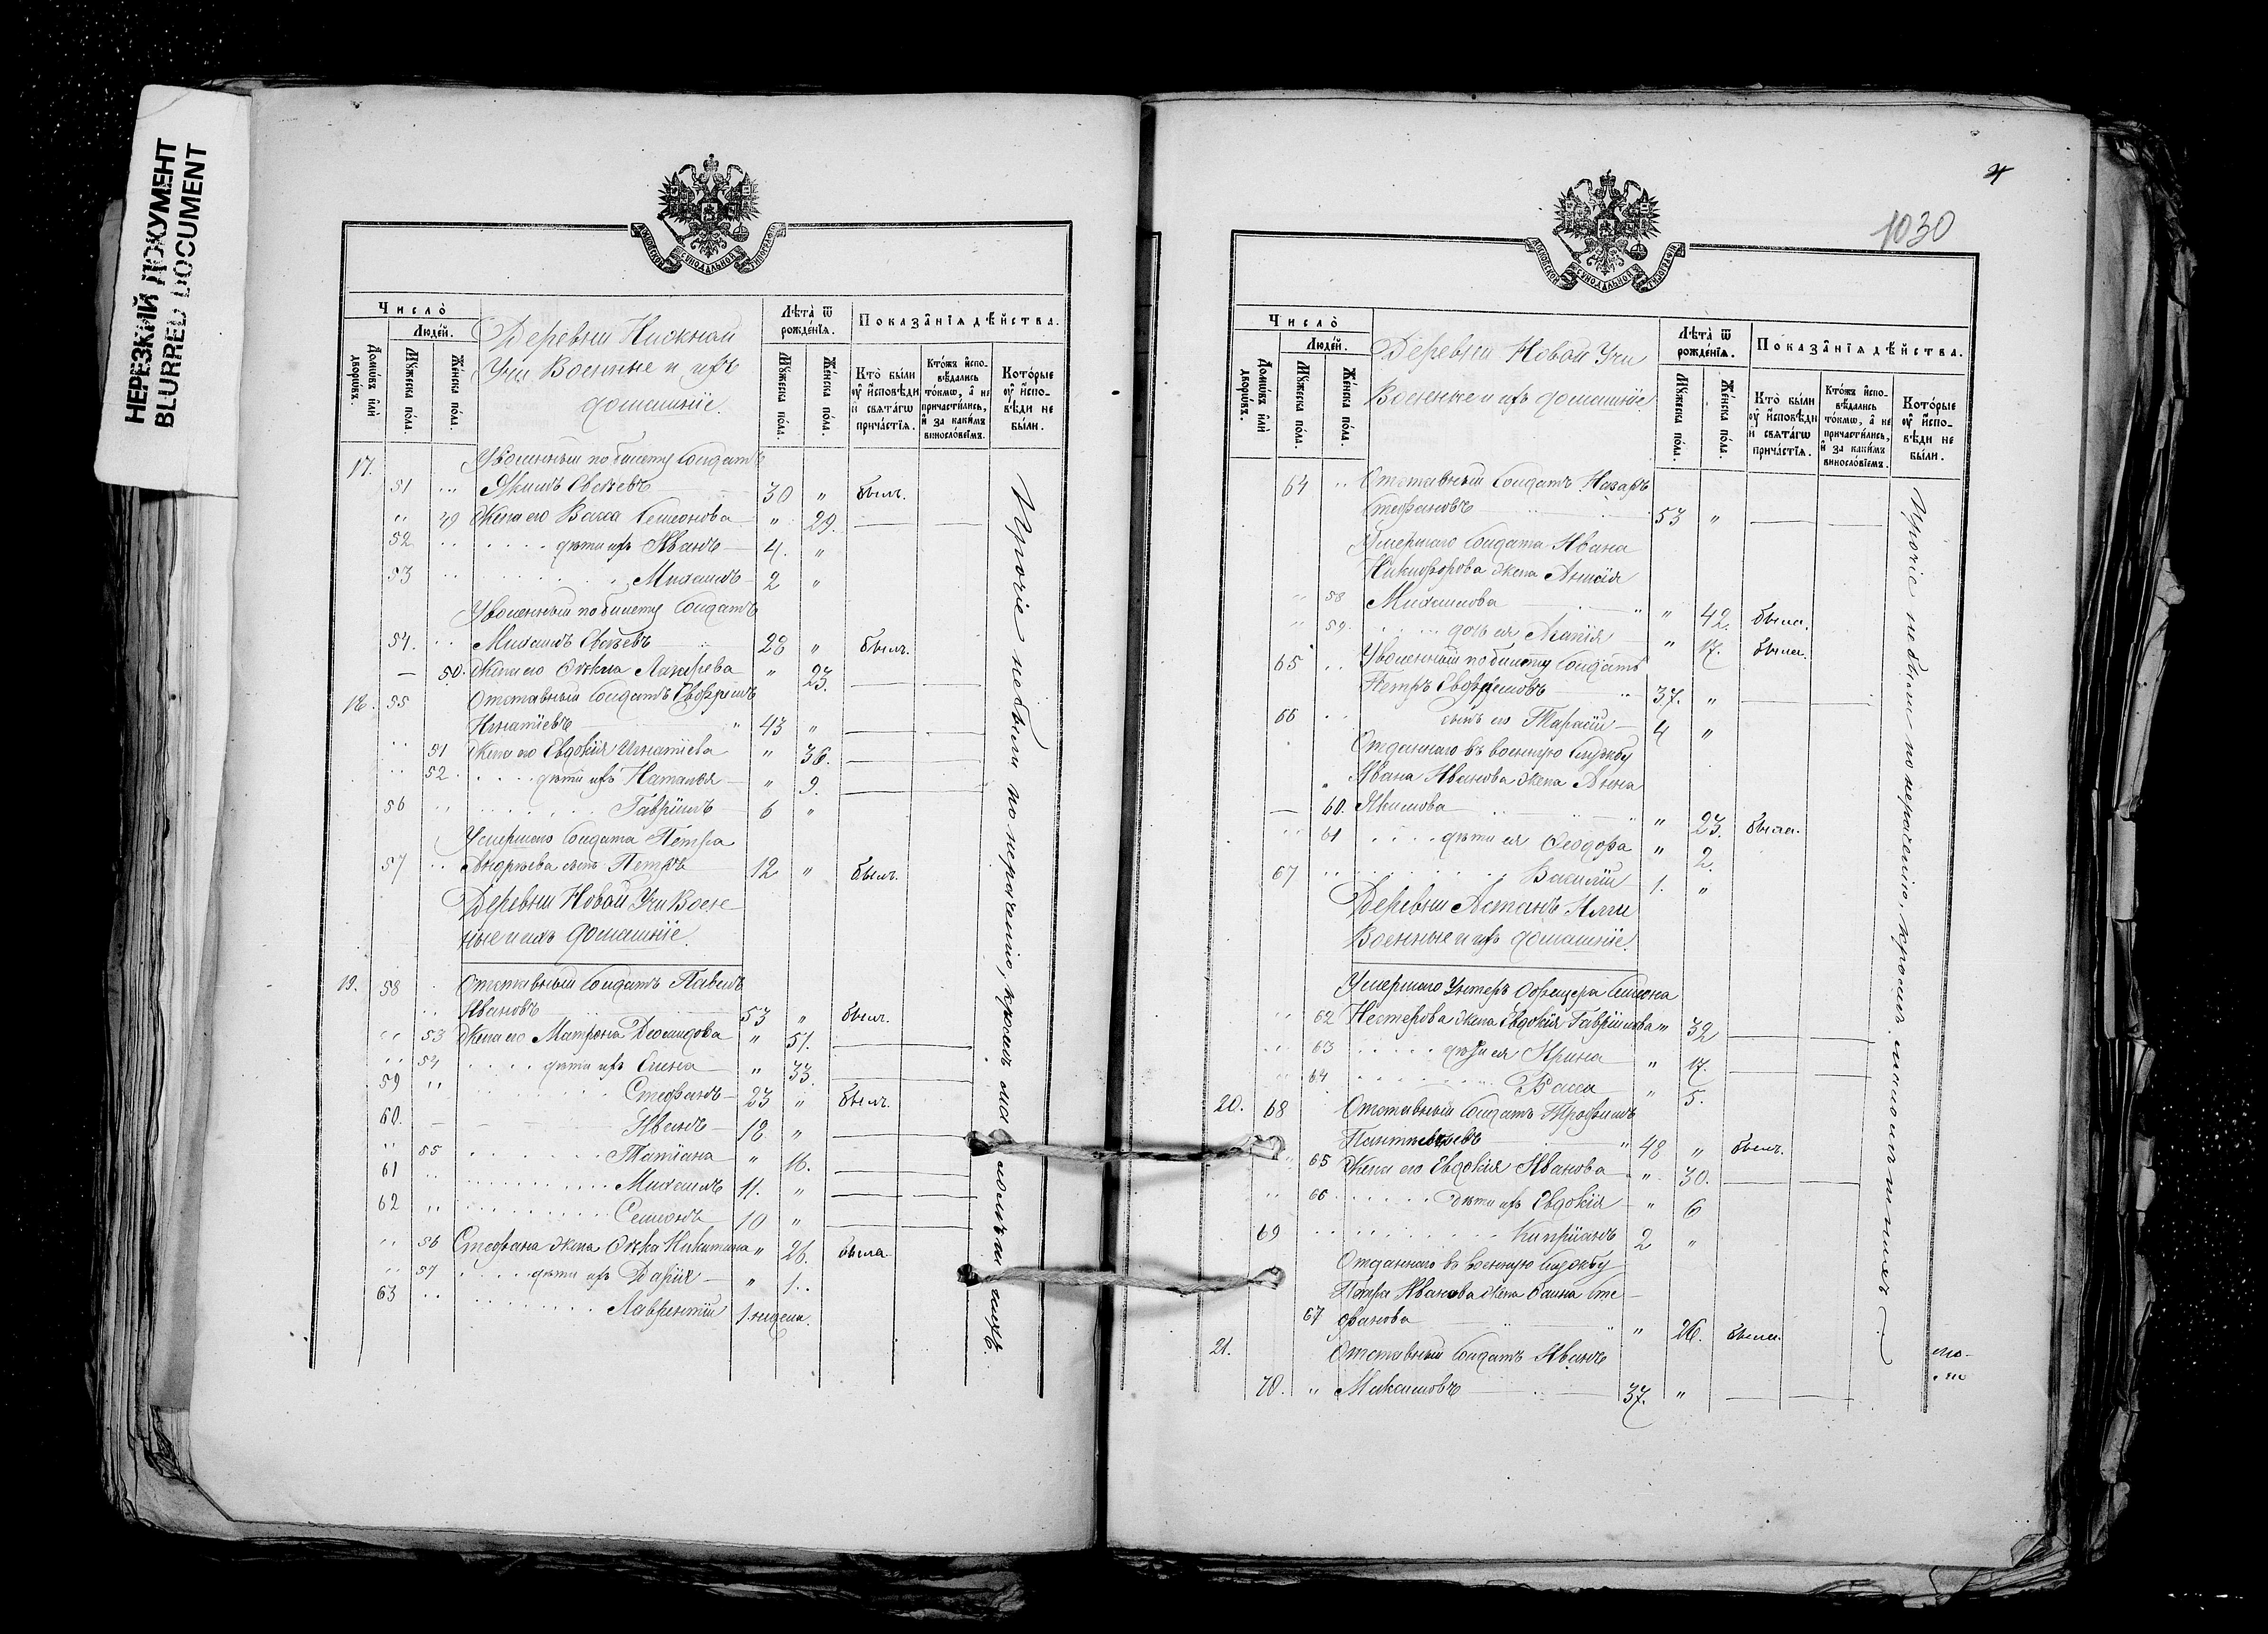 НЕРЕЗКИЙ ДОКУМЕНТ
BLURRED DOCUMENT
МОСКОВСКОЙ СѴНОДАЛЬНОЙ ТИПОГРАФІИ
Число̀
Люде́й.
Домѡ́въ и҆лѝ дворѡ́въ.
Мꙋ́жеска по́ла.
Же́нска по́ла.
Деревни Нижной
Учи Военные и ихъ
домашніе.
Лѣта̀ ѿ рожде́нїѧ.
Мꙋ́жеска по́ла.
Же́нска по́ла.
Показа̑нїѧ дѣ́йства.
Кто̀ бы́ли оу҆ и҆сповѣ́ди и҆ свѧта́гѡ прича́стїѧ.
Кто́жъ и҆спо-вѣ́дались то́кмѡ, а҆ не причасти́лись, и҆ за каки́мъ винослові́емъ.
Кото́рые оу҆ и҆спо-вѣ́ди не бы́ли.
17.
Уволенный по билету Солдатъ
51 .. Якимъ Евсѣевъ 30 " былъ.
" 49 Жена его Васса Семенова " 29.
52 .. дѣти ихъ Иванъ 4. "
53 .. Михаилъ 2 "
Уволенный по билету Солдатъ
54. .. Михаилъ Евсѣевъ 28 " былъ.
— 50. Жена его Ѳекла Лазарева " 23.
18. 55 Отставный Солдатъ Евфримъ
Игнатіевъ " 43 "
.. 51 Жена его Евдокія Игнатіева " 36.
.. 52. дѣти ихъ Наталья " 9.
56 .. Гавріилъ 6 "
Умершаго Солдата Петра
57 .. Андреева сынъ Петръ 12 " былъ.
Деревни Новой Учи Воен-
ные и ихъ домашніе.
19. 58 Отставный Солдатъ Павелъ
Ивановъ 53 " былъ.
.. 53 Жена его Матрона " 51.
.. 54 дѣти ихъ Елена " 33.
59 .. Стефанъ 23 " былъ.
60. Иванъ 18 "
.. 55 Татіана " 16.
61 .. Михаилъ 11. "
62 .. Семенъ 10 "
.. 56 Стефана жена Никитина " 26. была.
.. 57 дѣти ихъ Дарія " 1.
63 .. Лаврентій 1 недели.
Прочіе не были по нераченію,
4
1030
МОСКОВСКОЙ СѴНОДАЛЬНОЙ ТИПОГРАФІИ
Число̀
Люде́й.
Домѡ́въ и҆лѝ дворѡ́въ.
Мꙋ́жеска по́ла.
Же́нска по́ла.
Деревни Новой Учи
Военные и ихъ домашніе.
Лѣта̀ ѿ рожде́нїѧ.
Мꙋ́жеска по́ла.
Же́нска по́ла.
Показа̑нїѧ дѣ́йства.
Кто̀ бы́ли оу҆ и҆сповѣ́ди и҆ свѧта́гѡ прича́стїѧ.
Кто́жъ и҆спо-вѣ́дались то́кмѡ, а҆ не причасти́лись, и҆ за каки́мъ винослові́емъ.
Кото́рые оу҆ и҆спо-вѣ́ди не бы́ли.
64 .. Отставный Солдатъ Назаръ
Стефановъ 53 "
Умершаго Солдата Ивана
Никифорова жена Анисія
.. 58 Михаилова " 42. была.
.. 59. дочь ея Агапія " 17. была.
65 .. Уволенный по билету Солдатъ
Петръ Евфремовъ 37. "
66 .. сынъ его Тарасій 4 "
Отданнаго въ военную службу
Ивана Иванова жена Анна
— 60. Якимова " 23. была.
.. 61 дѣти ея Ѳеодора " 2.
67 .. Василій 1. "
Деревни Астанъ Илги
Военные и ихъ домашніе.
Умершаго Унтеръ Офицера Симеона
.. 62 Нестерова жена Евдокія Гавріилова " 32
.. 63 дѣти ея Ирина " 17.
.. 64 Васса " 5.
20. 68 Отставный Солдатъ Трофимъ
" 48 " былъ.
65 Жена его Евдокія Иванова " 30.
.. 66 дѣти ихъ Евдокія " 6
69 Кипріанъ 2 "
Отданнаго въ военную службу
Петра Иванова жена Сте-
67 фанова " 26. была.
21. Отставный Солдатъ Иванъ
70. " Максимовъ 37. "
Прочіе не были по нераченію,